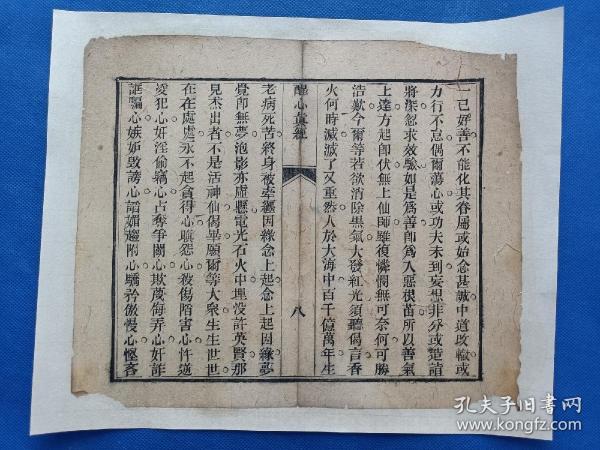 一己好善不能化其眷屬或始念甚誠中道改轍或
力行不怠偶爾蕩心或功夫未到妄想非分或楚誼
將能忽求效驗如是爲善即爲入惡根苗所以善氣
上達方起即伏無上仙師雖復憐憫無可奈何可勝
浩歎今爾等若欲消除黑氣大發紅光須聽偈言香
火何時滅滅了又重然人於大海中百千億萬年生
醒心眞經
八
老病死苦終身被牽纏因緣念上起念上起因緣夢
覺卽無夢泡影亦虛懸電光石火中埋没許英賢那
見杰出者不是活神仙偈畢願爾等大衆生生世世
在在處處永不起貪得心瞋怨心殺傷心陷害心忤逆
凌犯心奸淫偷竊心占奪爭鬬心欺蔑侮弄心奸詐
誆騙心嫉妒毀謗心諂媚邀附心驕矜傲慢心慳吝
孔夫子旧书网
www.kongfz.com